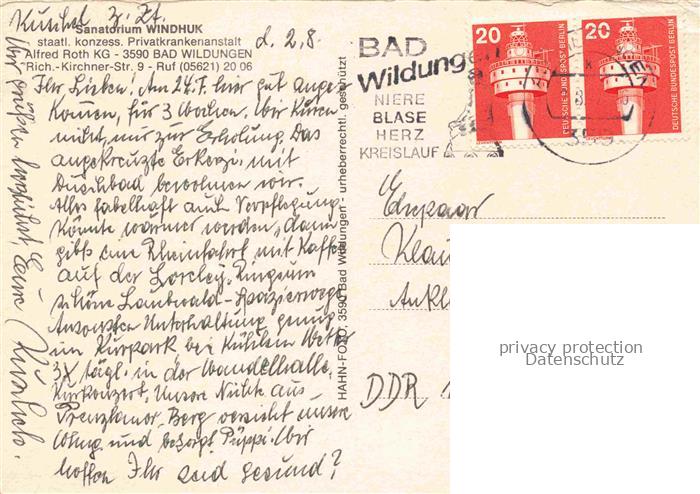 z. Zt.
Sanatorium WINDHUK
staatl. konzess. Privatkrankenanstalt
Alfred Roth KG - 3590 BAD WILDUNGEN
Rich.-Kirchner-Str. 9 - Ruf (05621) 20 06
d. 2.8.
Ihr Lieben! Am 24.7. hier gut ange-
kommen, für 3 Wochen. Wir kuren
nicht, nur zur Erholung. Das
angekreuzte Erkerzi. mit
Duschbad bewohnen wir.
Alles fabelhaft auch Verpflegung
könnte wärmer werden, dann
gibts eine Rheinfahrt mit Kaffee
auf der Loreley. Ringsum
schöne Laubwald-Spazierwege
Ansonsten Unterhaltung genug
im Kurpark bei kühlem Wetter
3x tägl. in der Wandelhalle
Kurkonzert. Unsere Nichte aus
Prenzlauer Berg versieht unsre
Whng und besorgt Püppi. Wir
hoffen Ihr seid gesund?
Wir grüßen herzlichst, Eure
HAHN-FOTO, 3590 Bad Wildungen - urheberrechtl. geschützt
BAD
Wildungen
NIERE
BLASE
HERZ
KREISLAUF
20
DEUTSCHE BUNDESPOST BERLIN
20
DEUTSCHE BUNDESPOST BERLIN
359
Ehepaar
Klau
Ankl
DDR
privacy protection
Datenschutz